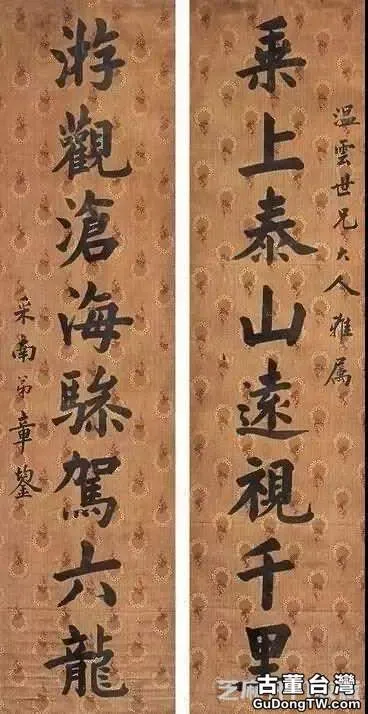 温雲世兄大人雅屬
乘上泰山遠視千里
游觀滄海驂駕六龍
采南弟章鋆
古董台灣
GuDongTW.com